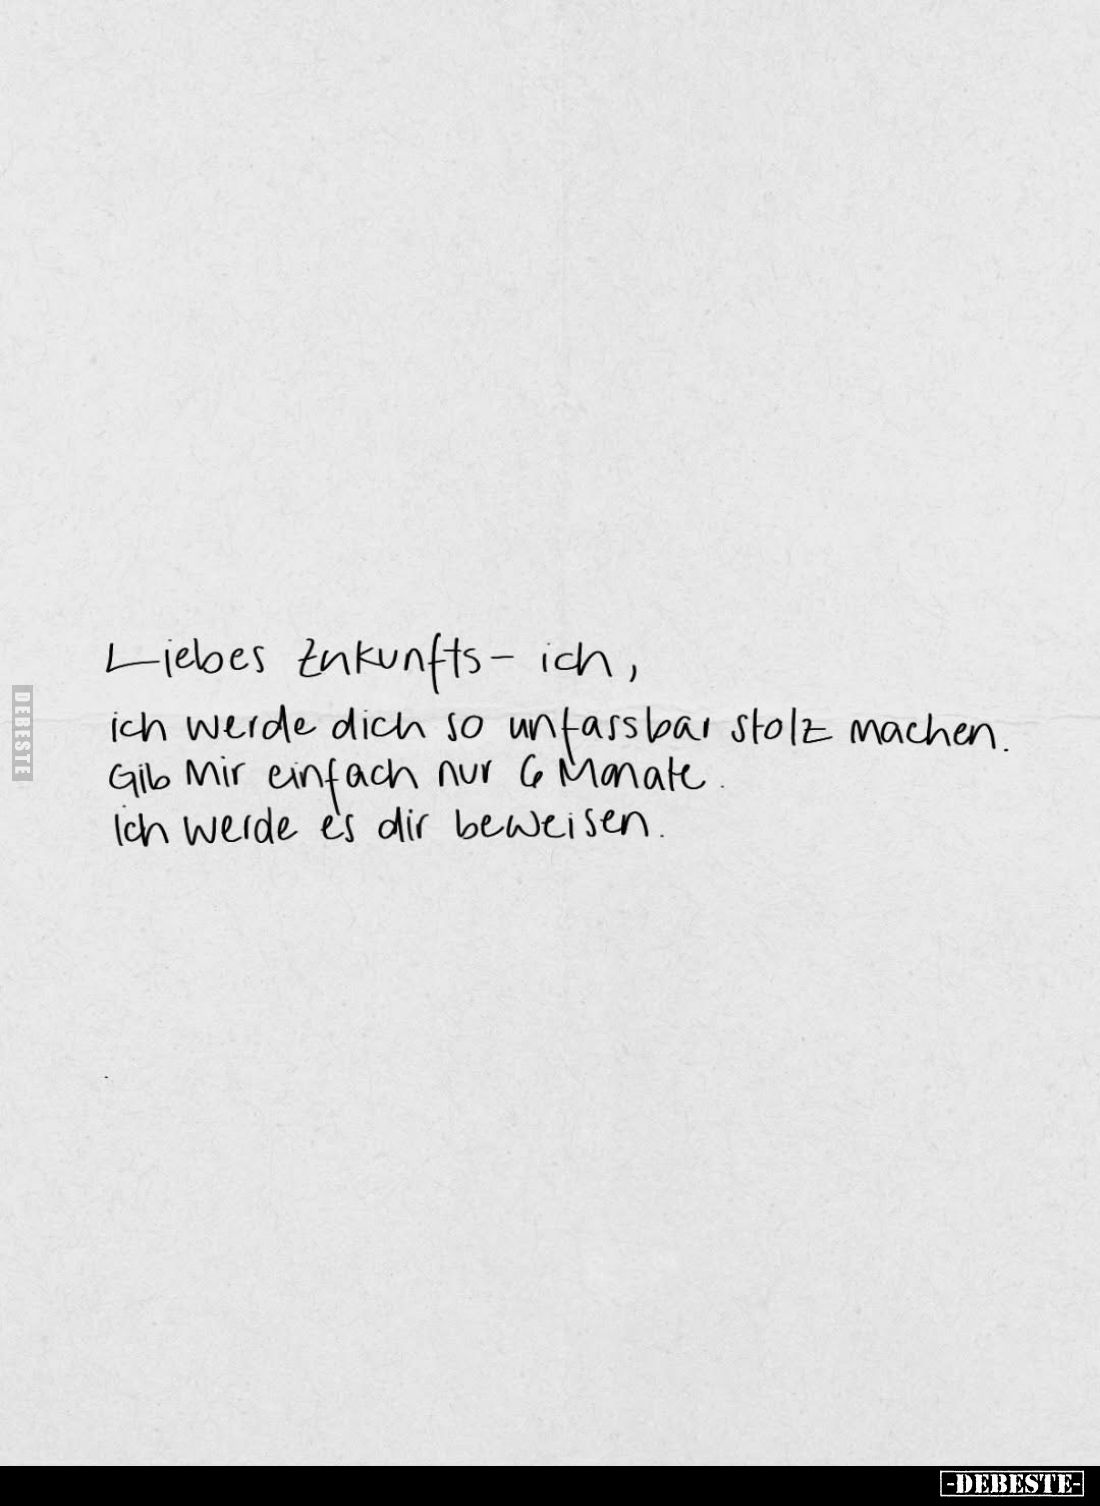 Liebes Zukunfts- ich,
ich werde dich so unfassbar stolz machen.
Gib Mir einfach nur 6 Monate.
Ich werde es dir beweisen.
DEBESTE
-DEBESTE-